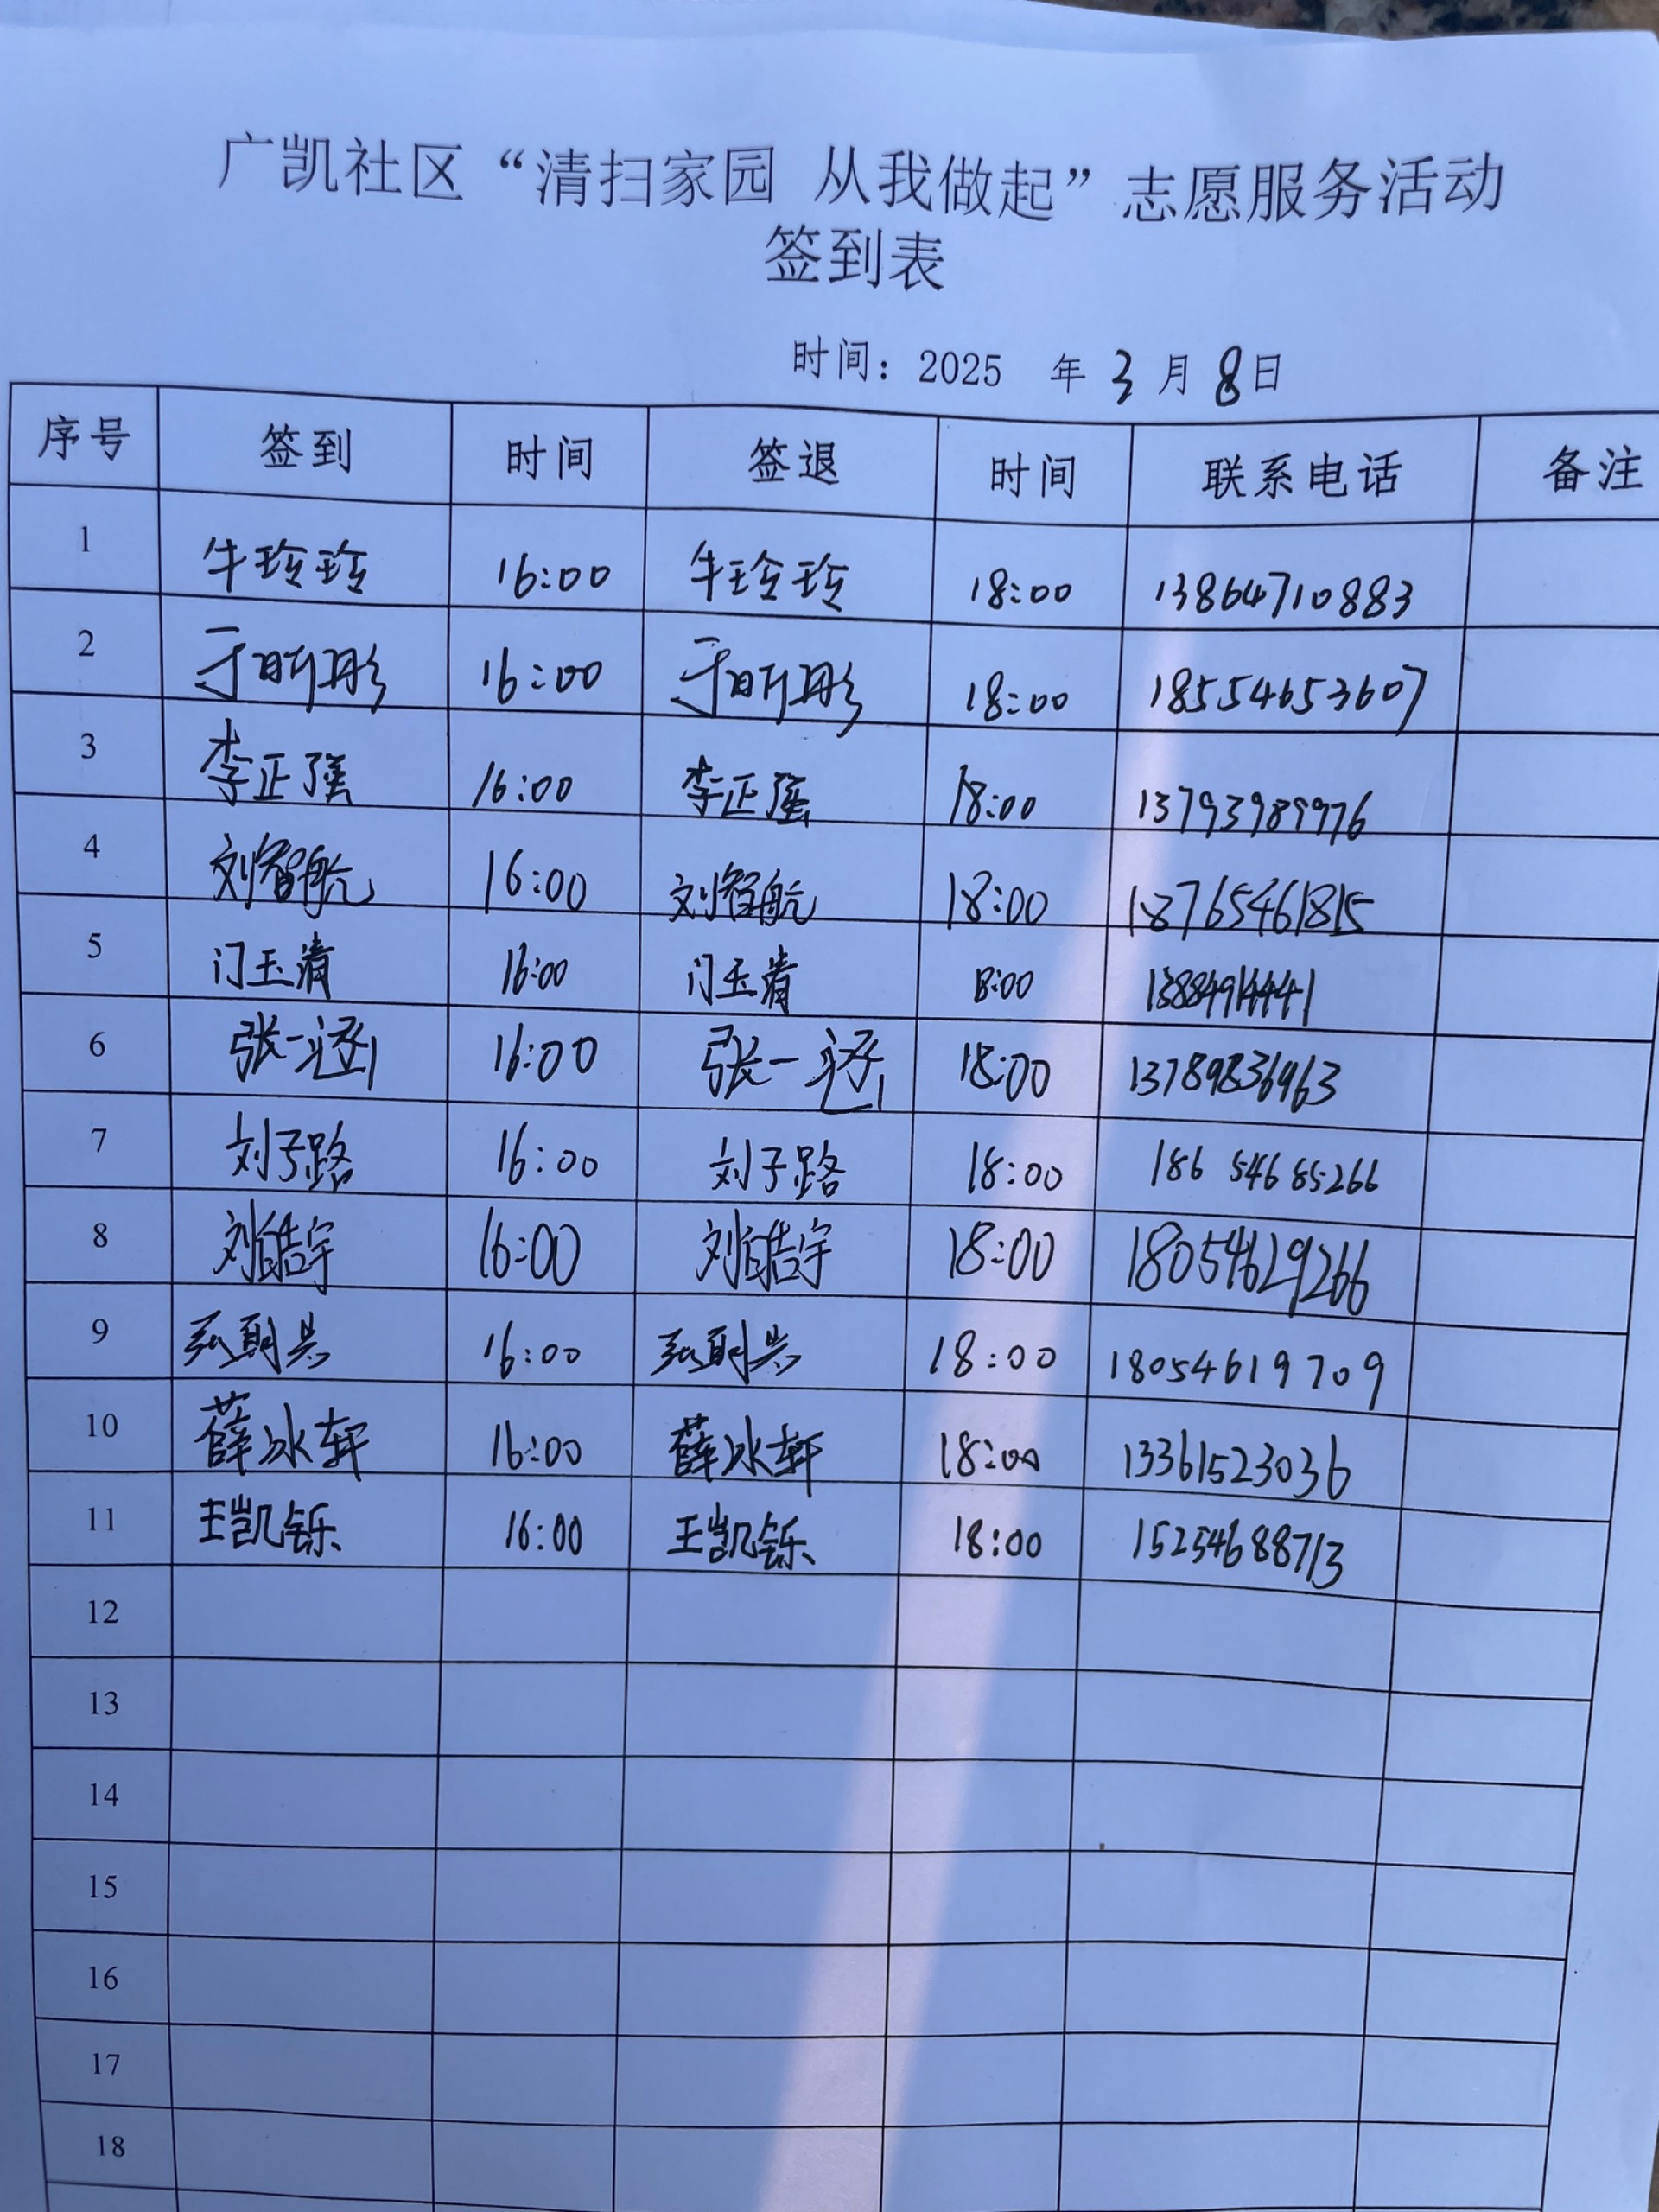 广凯社区“清扫家园 从我做起”志愿服务活动
签到表
时间：2025 年 3 月 8 日
序号 签到 时间 签退 时间 联系电话 备注
1 牛玲玲 16:00 牛玲玲 18:00 13864710883
2 于昕彤 16:00 于昕彤 18:00 18554653607
3 李正强 16:00 李正强 18:00 13793989976
4 刘智航 16:00 刘智航 18:00 18765461815
5 门玉清 16:00 门玉清 18:00
6 张一涵 16:00 张一涵 18:00 13789836963
7 刘子路 16:00 刘子路 18:00 186 546 85266
8 刘皓宇 16:00 刘皓宇 18:00 18054629266
9 16:00 18:00 18054619709
10 薛冰轩 16:00 薛冰轩 18:00 13361523036
11 王凯铄 16:00 王凯铄 18:00 15254688713
12
13
14
15
16
17
18